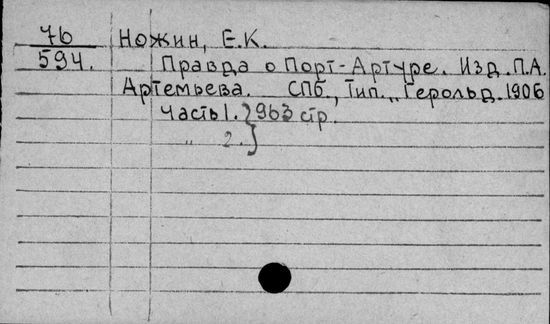 76 Ножин, Е.К.
594. Правда о Порт-Артуре. Изд. П.А.
Артемьева. СПб., Тип. „Герольд. 1906
Часть 1. } 963 стр.
„ 2. }